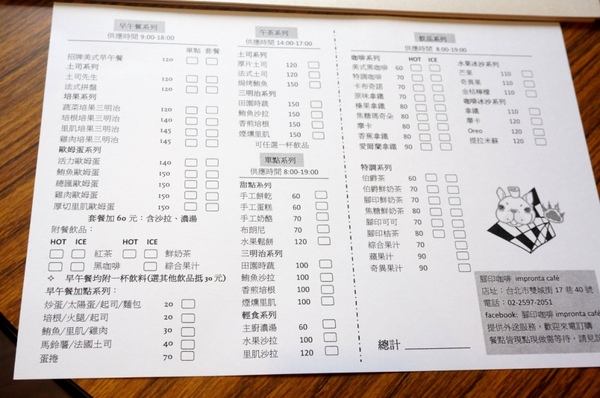 早午餐系列
供應時間 9:00-18:00
單點 套餐
招牌美式早午餐 120
土司系列
土司先生 120
法式拼盤 120
培果系列
蔬菜培果三明治 120
培根培果三明治 145
里肌培果三明治 145
雞肉培果三明治 145
歐姆蛋系列
活力歐姆蛋 140
鮪魚歐姆蛋 150
總匯歐姆蛋 150
雞肉歐姆蛋 150
厚切里肌歐姆蛋 150
套餐加 60 元：含沙拉、濃湯
附餐飲品：
HOT ICE HOT ICE
紅茶 鮮奶茶
黑咖啡 綜合果汁
✧ 早午餐均附一杯飲料(選其他飲品抵 30 元)
早午餐加點系列：
炒蛋/太陽蛋/起司/麵包 20
培根/火腿/起司 20
鮪魚/里肌/雞肉 30
馬鈴薯/法國土司 40
蛋捲 70
午茶系列
供應時間 14:00-17:00
土司系列
厚片土司 120
法式土司 120
焗烤鮪魚 150
三明治系列
田園時蔬 150
鮪魚沙拉 150
香煎培根 150
煙燻里肌 150
可任選一杯飲品
單點系列
供應時間 8:00-19:00
甜點系列
手工餅乾 60
手工蛋糕 60
手工奶酪 70
布朗尼 70
水果鬆餅 120
三明治系列
田園時蔬 100
鮪魚沙拉 100
香煎培根 100
煙燻里肌 100
輕食系列
主廚濃湯 60
水果沙拉 100
里肌沙拉 120
飲品系列
供應時間 8:00-19:00
咖啡系列 HOT ICE
美式黑咖啡 60
特調咖啡 70
卡布奇諾 70
原味拿鐵 70
焦糖瑪奇朵 80
榛果拿鐵 80
摩卡 80
香蕉拿鐵 80
愛爾蘭拿鐵 90
特調系列
伯爵茶 60
伯爵鮮奶茶 70
腳印鮮奶茶 70
焦糖鮮奶茶 80
腳印可可 70
腳印桔茶 80
綜合果汁 70
蘋果汁 90
奇異果汁 90
總計
水果冰沙系列
芒果 110
奇異果 110
金桔檸檬 110
咖啡冰沙系列
拿鐵 110
摩卡 120
Oreo 120
提拉米蘇 120
腳印咖啡 impronta café
店址：台北市雙城街 17 巷 40 號
電話：02-2597-2051
facebook: 腳印咖啡 impronta café
提供外送服務，歡迎來電訂購
餐點皆現點現做需等待，請見諒